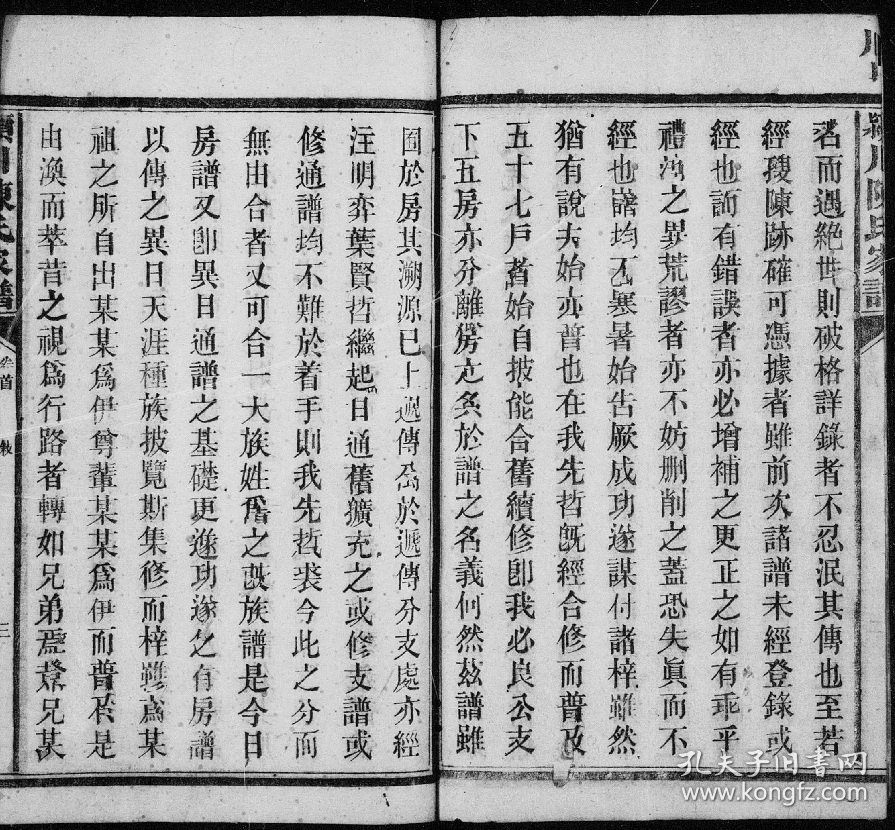 潁川陳氏家譜
名而遇絕世則破格詳錄者不忍泯其傳也至若
經搜陳跡確可憑據者雖前次諸譜未經登錄或
經也而有錯誤者亦必增補之更正之如有乖乎
禮法之異荒謬者亦不妨刪削之蓋恐失眞而不
經也歲均乙寒暑始告厥成功遂謀付諸梓雖然
猶有說夫始亦普也在我先哲旣經合修而普及
五十七戶者始自披能合舊續修卽我必良公支
下五房亦分離房之矣於譜之名義何然茲譜雖
囿於房其溯源已上遞傳公於遞傳分支處亦經
注明弈葉賢哲繼起日通舊擴充之或修支譜或
修通譜均不難於着手則我先哲裘今此之分而
無由合者又可合一大族姓爲之旣族譜是今日
房譜又卽異日通譜之基礎更遂功遂之有房譜
以傳之異日天涯種族披覽斯集修而梓雖爲某
祖之所自出某某爲伊尊輩某某爲伊而普不是
由渙而萃昔之視爲行路者轉如兄弟焉羣兄某
潁川陳氏家譜
卷首
敘
三
孔夫子旧书网
www.kongfz.com